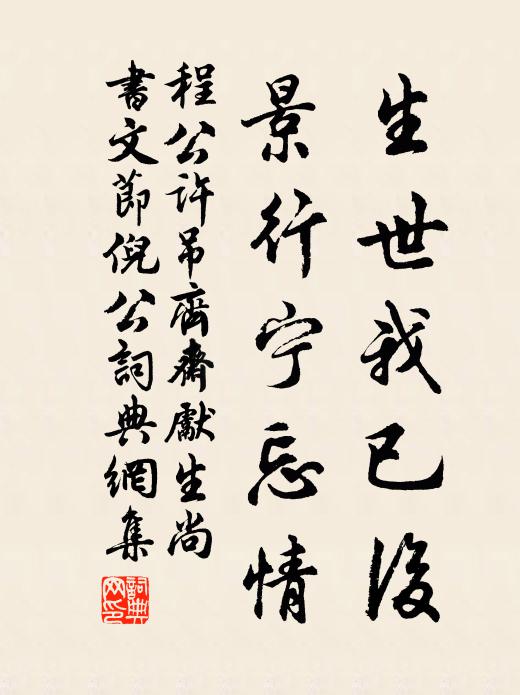 生世我已後
景行宁忘情
程公許吊齊齋獻生尚
書文節倪公詞典網集
詞典
网印